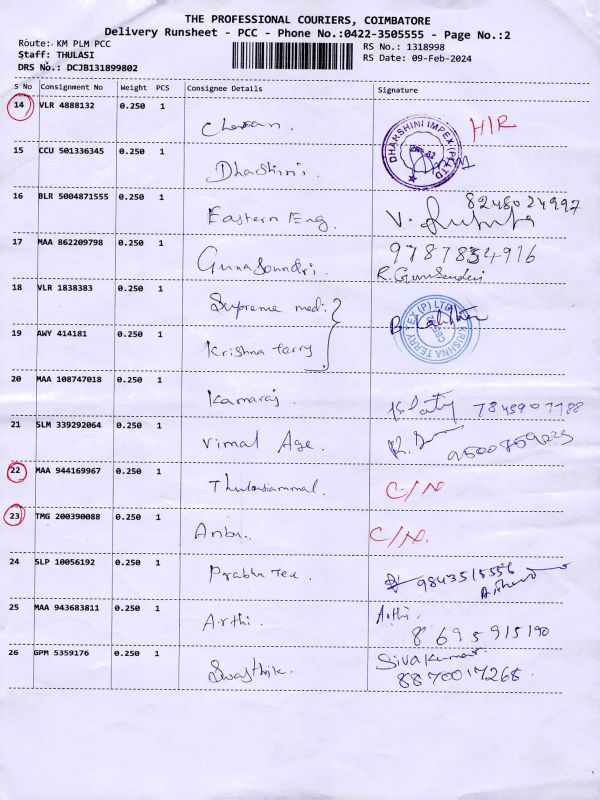 THE PROFESSIONAL COURIERS, COIMBATORE
Delivery Runsheet - PCC - Phone No.:0422-3505555 - Page No.:2
Route: KM PLM PCC
Staff: THULASI
DRS No.: DCJB131899802
RS No.: 1318998
RS Date: 09-Feb-2024
S No Consignment No Weight PCS Consignee Details Signature
14 VLR 4888132 0.250 1 H/R
DHARSHINI IMPEX (P) LTD
15 CCU 501336345 0.250 1 Dharshini.
16 BLR 5004871555 0.250 1 Eastern Eng. 8248024997
17 MAA 862209798 0.250 1 GunaSoundri. 9787834916
R. GunaSundari
18 VLR 1838383 0.250 1 Supreme medi.
KRISHNA TERRY TEX (P) LTD
19 AWY 414181 0.250 1 Krishna terry
20 MAA 108747018 0.250 1 Kamaraj.
21 SLM 339292064 0.250 1 Vimal Age.
22 MAA 944169967 0.250 1 Thulasiammal. C/N
23 TMG 200390088 0.250 1 Anbu. C/N.
24 SLP 10056192 0.250 1 Prabhu Tex. 9843515556
25 MAA 943683811 0.250 1 Arthi. Arthi.
8695915190
26 GPM 5359176 0.250 1 Swasthik. Sivakumar
8870017268.